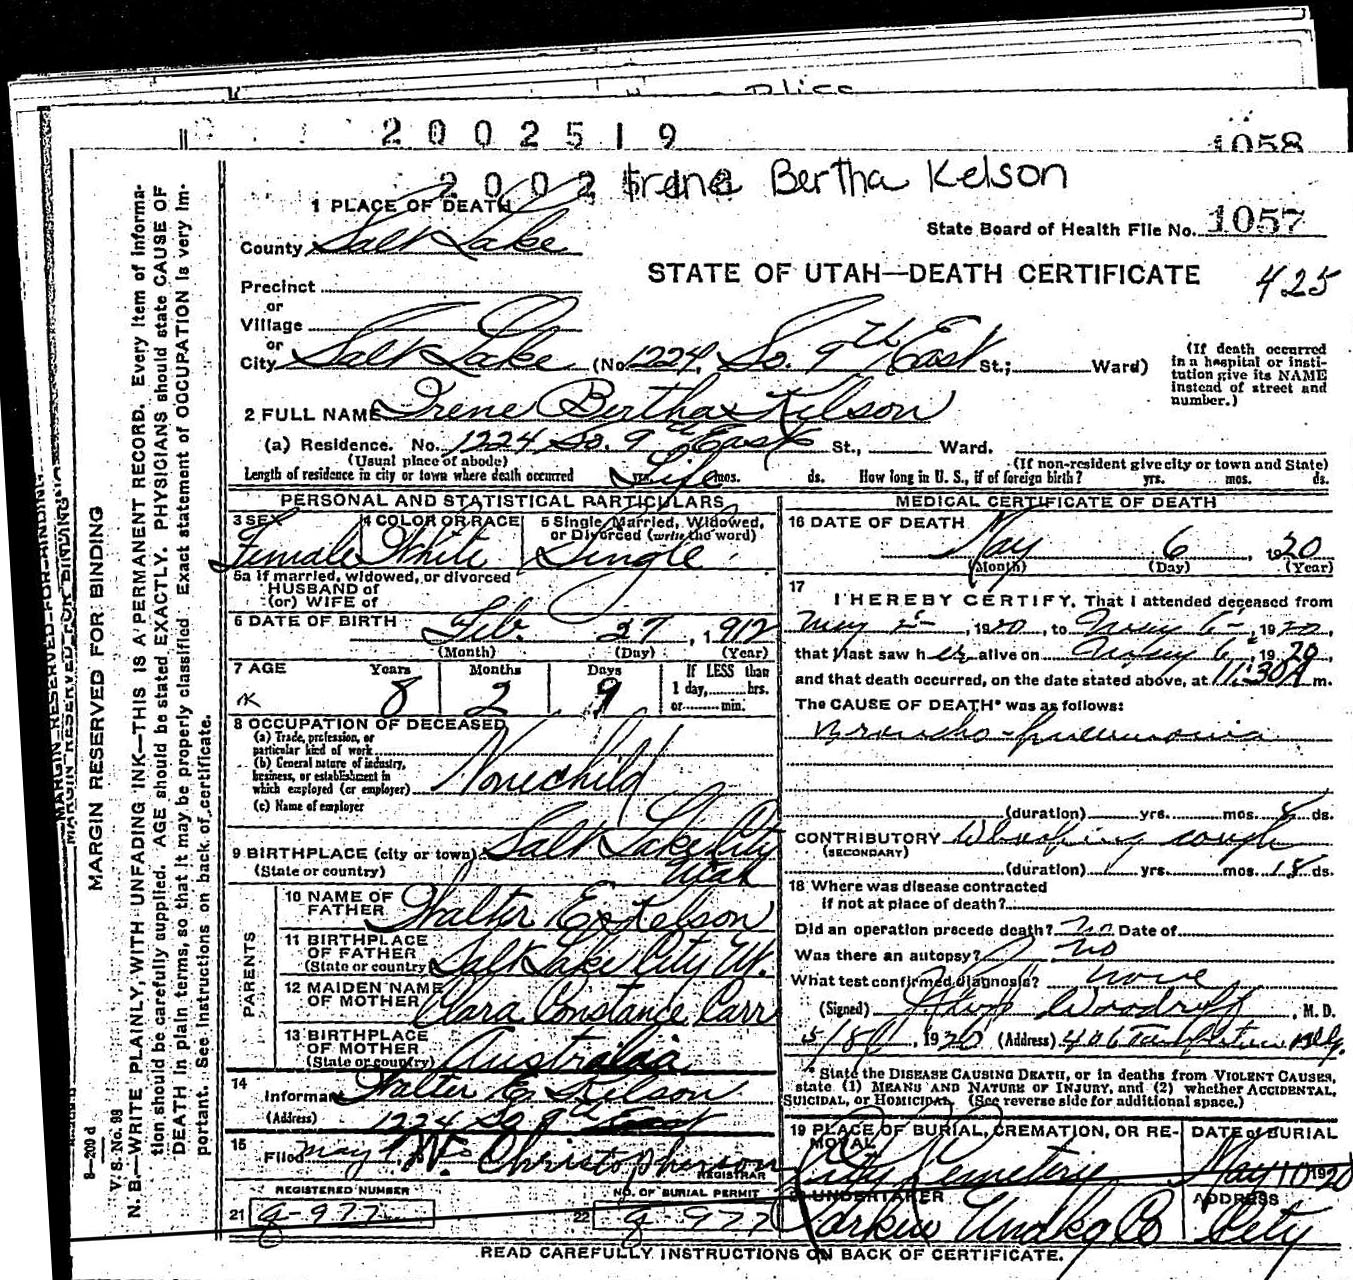 2002519
1058
2002
Irene Bertha Kelson
1 PLACE OF DEATH
State Board of Health File No. 1057
County Salt Lake
STATE OF UTAH—DEATH CERTIFICATE
425
Precinct
or
Village
or
City Salt Lake (No. 1224 So. 9th East St.; Ward)
(If death occurred in a hospital or institution give its NAME instead of street and number.)
2 FULL NAME Irene Bertha Kelson
(a) Residence. No. 1224 So. 9th East St., Ward.
(Usual place of abode) (If non-resident give city or town and State)
Length of residence in city or town where death occurred yrs. Life mos. ds. How long in U. S., if of foreign birth? yrs. mos. ds.
PERSONAL AND STATISTICAL PARTICULARS
3 SEX Female
4 COLOR OR RACE White
5 Single, Married, Widowed, or Divorced (write the word) Single
5a If married, widowed, or divorced
HUSBAND of
(or) WIFE of
6 DATE OF BIRTH Feb. 27, 1912
(Month) (Day) (Year)
7 AGE Years 8 Months 2 Days 9 If LESS than 1 day, hrs. or min.
8 OCCUPATION OF DECEASED
(a) Trade, profession, or particular kind of work
(b) General nature of industry, business, or establishment in which employed (or employer)
None child
(c) Name of employer
9 BIRTHPLACE (city or town) Salt Lake City
(State or country) Utah
PARENTS
10 NAME OF FATHER Walter E. Kelson
11 BIRTHPLACE OF FATHER (State or country) Salt Lake City Ut.
12 MAIDEN NAME OF MOTHER Clara Constance Carr
13 BIRTHPLACE OF MOTHER (State or country) Australia
14 Informant Walter E. Kelson
(Address) 1224 So 9th East
15 Filed May W. Christopherson
REGISTRAR
REGISTERED NUMBER
21 8-977
NO. OF BURIAL PERMIT
22 8-977
MEDICAL CERTIFICATE OF DEATH
16 DATE OF DEATH May 6, 1920
(Month) (Day) (Year)
17 I HEREBY CERTIFY, That I attended deceased from
May 2, 1920, to May 6, 1920,
that I last saw her alive on May 6, 1920,
and that death occurred, on the date stated above, at 11:30 A m.
The CAUSE OF DEATH* was as follows:
Broncho-pneumonia
(duration) yrs. mos. 8 ds.
CONTRIBUTORY Whooping cough
(SECONDARY)
(duration) yrs. mos. 18 ds.
18 Where was disease contracted
if not at place of death?
Did an operation precede death? no Date of
Was there an autopsy? no
What test confirmed diagnosis? none
(Signed) Woodruff, M. D.
5/8, 1920 (Address) 406 Templeton Bldg.
* State the DISEASE CAUSING DEATH, or in deaths from VIOLENT CAUSES, state (1) MEANS AND NATURE OF INJURY, and (2) whether ACCIDENTAL, SUICIDAL, or HOMICIDAL. (See reverse side for additional space.)
19 PLACE OF BURIAL, CREMATION, OR REMOVAL City Cemeterie
DATE of BURIAL May 10 1920
20 UNDERTAKER Larkin Undtkg Co
ADDRESS City
READ CAREFULLY INSTRUCTIONS ON BACK OF CERTIFICATE.
MARGIN RESERVED FOR BINDING
N. B.—WRITE PLAINLY, WITH UNFADING INK—THIS IS A PERMANENT RECORD. Every item of information should be carefully supplied. AGE should be stated EXACTLY. PHYSICIANS should state CAUSE OF DEATH in plain terms, so that it may be properly classified. Exact statement of OCCUPATION is very important. See instructions on back of certificate.
V. S. No. 98
8-209 d